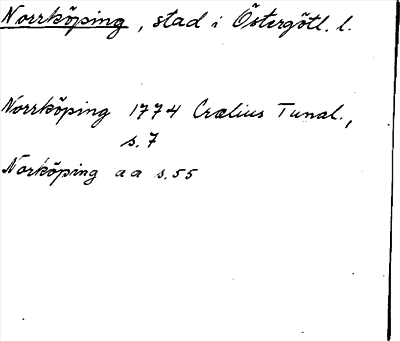 Norrköping, stad i Östergötl. l.
Norrköping 1774 Crælius Tunal.,
s. 7
Norköping a a s. 55